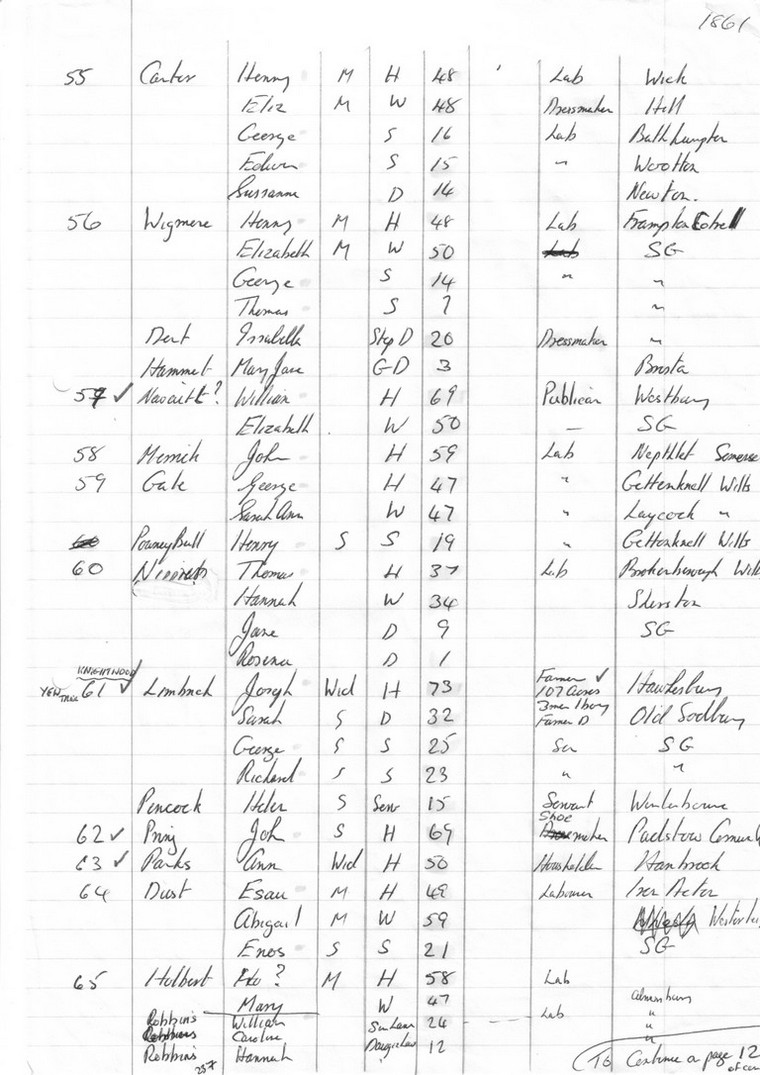 1861
55 Carter Henry M H 48 Lab Wick
Eliz M W 48 Dressmaker Hill
George S 16 Lab Bathhampton
Edwin S 15 " Wootton
Sussanna D 14 Newton.
56 Wigmore Henry M H 48 Lab Frampton Cotrell
Elizabeth M W 50 SG
George S 14 " "
Thomas S 7 "
Dert Issabella Step D 20 Dressmaker "
Hammet Mary Jane GD 3 Bristo
57 ✓ ? William H 69 Publican Westbury
Elizabeth W 50 — SG
58 John H 59 Lab Somerse
59 Gale George H 47 " Gettenknell Wilts
Sarah Ann W 47 " Laycock "
Pouney Bull Henry S S 19 " Gettonknell Wilts
60 Thomas H 37 Lab Brokenborough Wilt
Hannah W 34 Sherston
Jane D 9 SG
Rosena D 1
KNIGHTWOOD
YEW TREE 61 ✓ Limbrick Joseph Wid H 73 Farmer ✓ 107 Acres Hawkesbury
3 men 1 boy
Sarah S D 32 Farmer D Old Sodbury
George S S 25 Son SG
Richard S S 23 " "
Peacock Helen S Serv 15 Servant Winterbourne
62 ✓ Pring John S H 69 Shoe maker Padstow Cornwall
63 ✓ Parks Ann Wid H 50 Householder Hambrook
64 Dust Esau M H 49 Labourer Iron Acton
Abigail M W 59 Westerlei
Enos S S 21 SG
65 Holbert ? M H 58 Lab
Mary W 47 Almonsbury
Robbins William Sun Law 24 Lab "
Caroline "
Robbins Hannah 12
237
To Continue on page 12
of cen